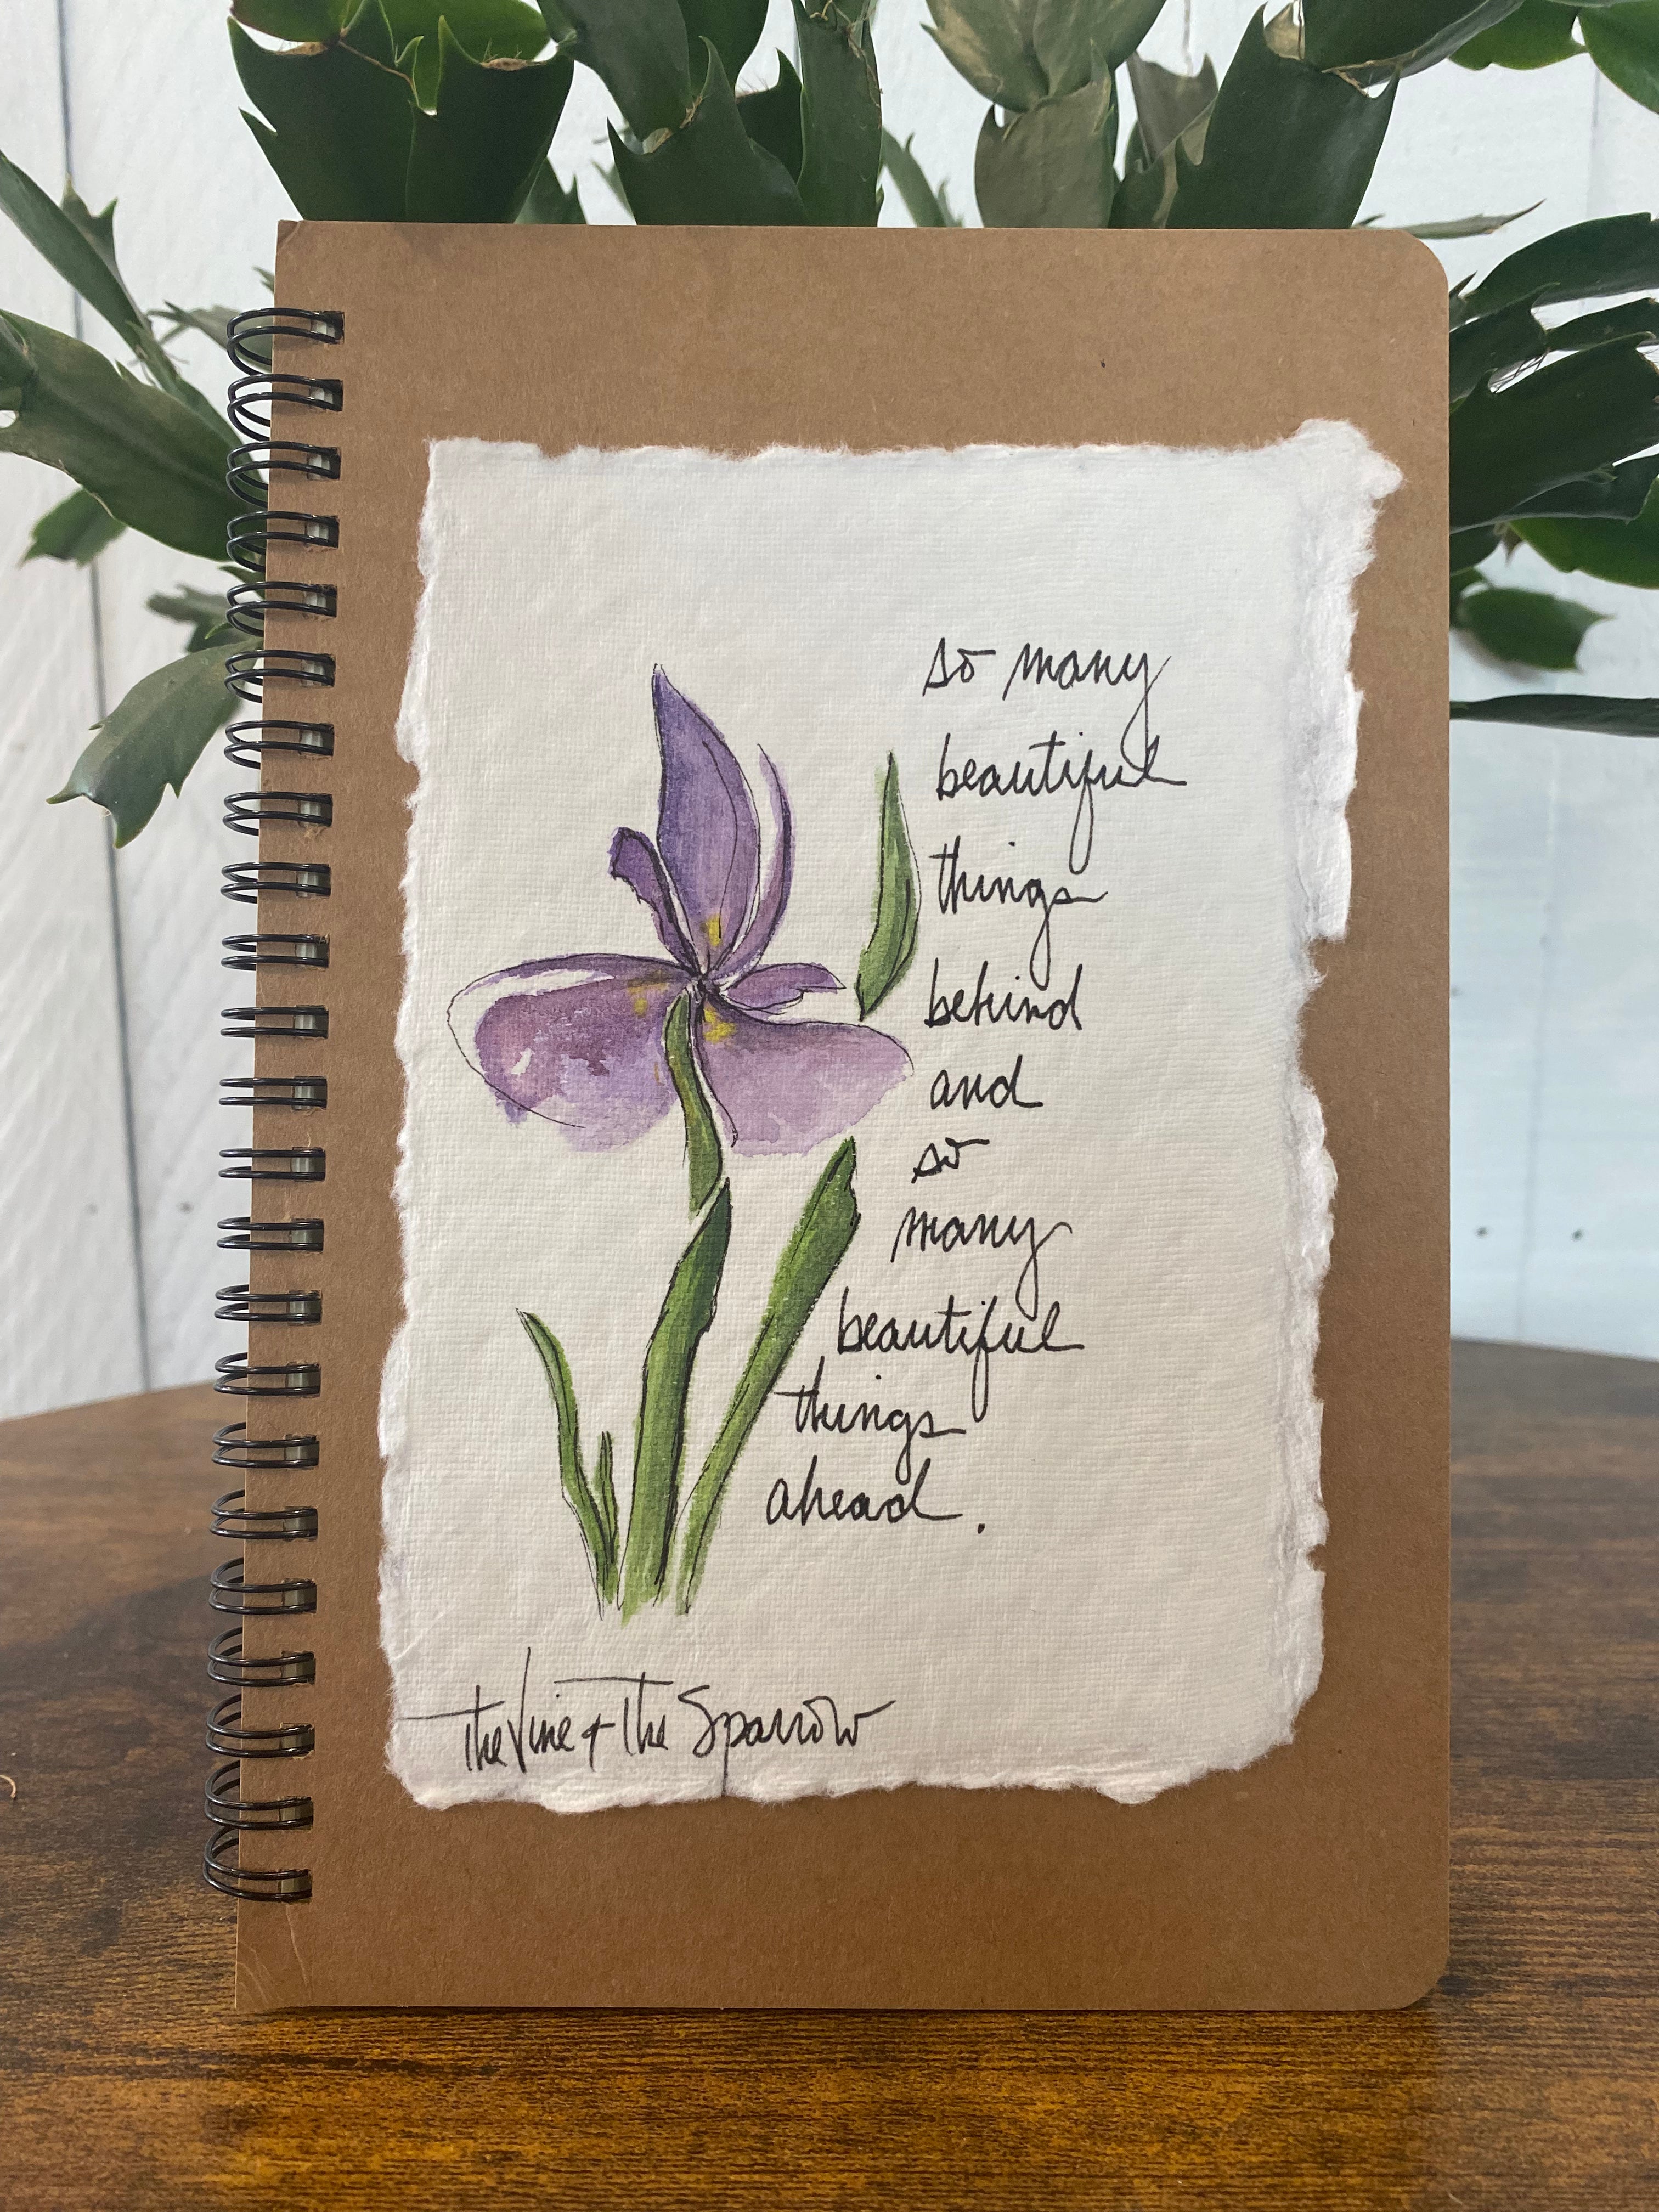 so many
beautiful
things
behind
and
so
many
beautiful
things
ahead.
The Vine + The Sparrow